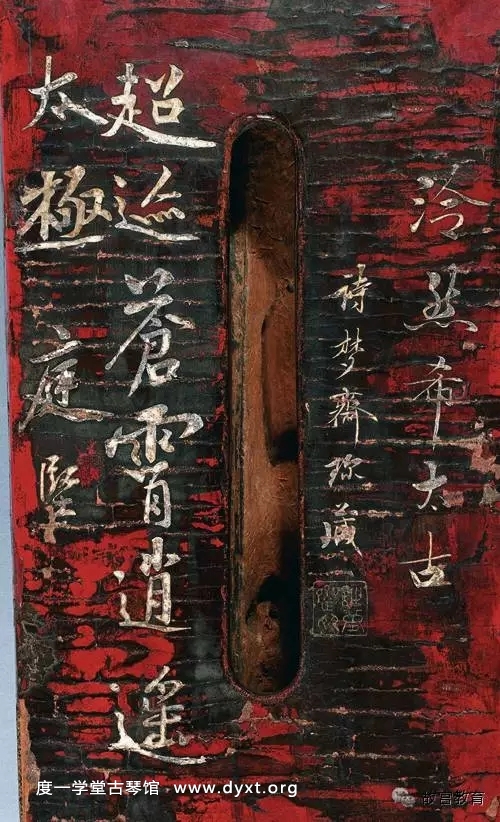 泠然希太古
詩夢齋珍藏
超迹蒼霄逍遥
太極 庭堅
度一学堂古琴馆 · www.dyxt.org
故宫教育